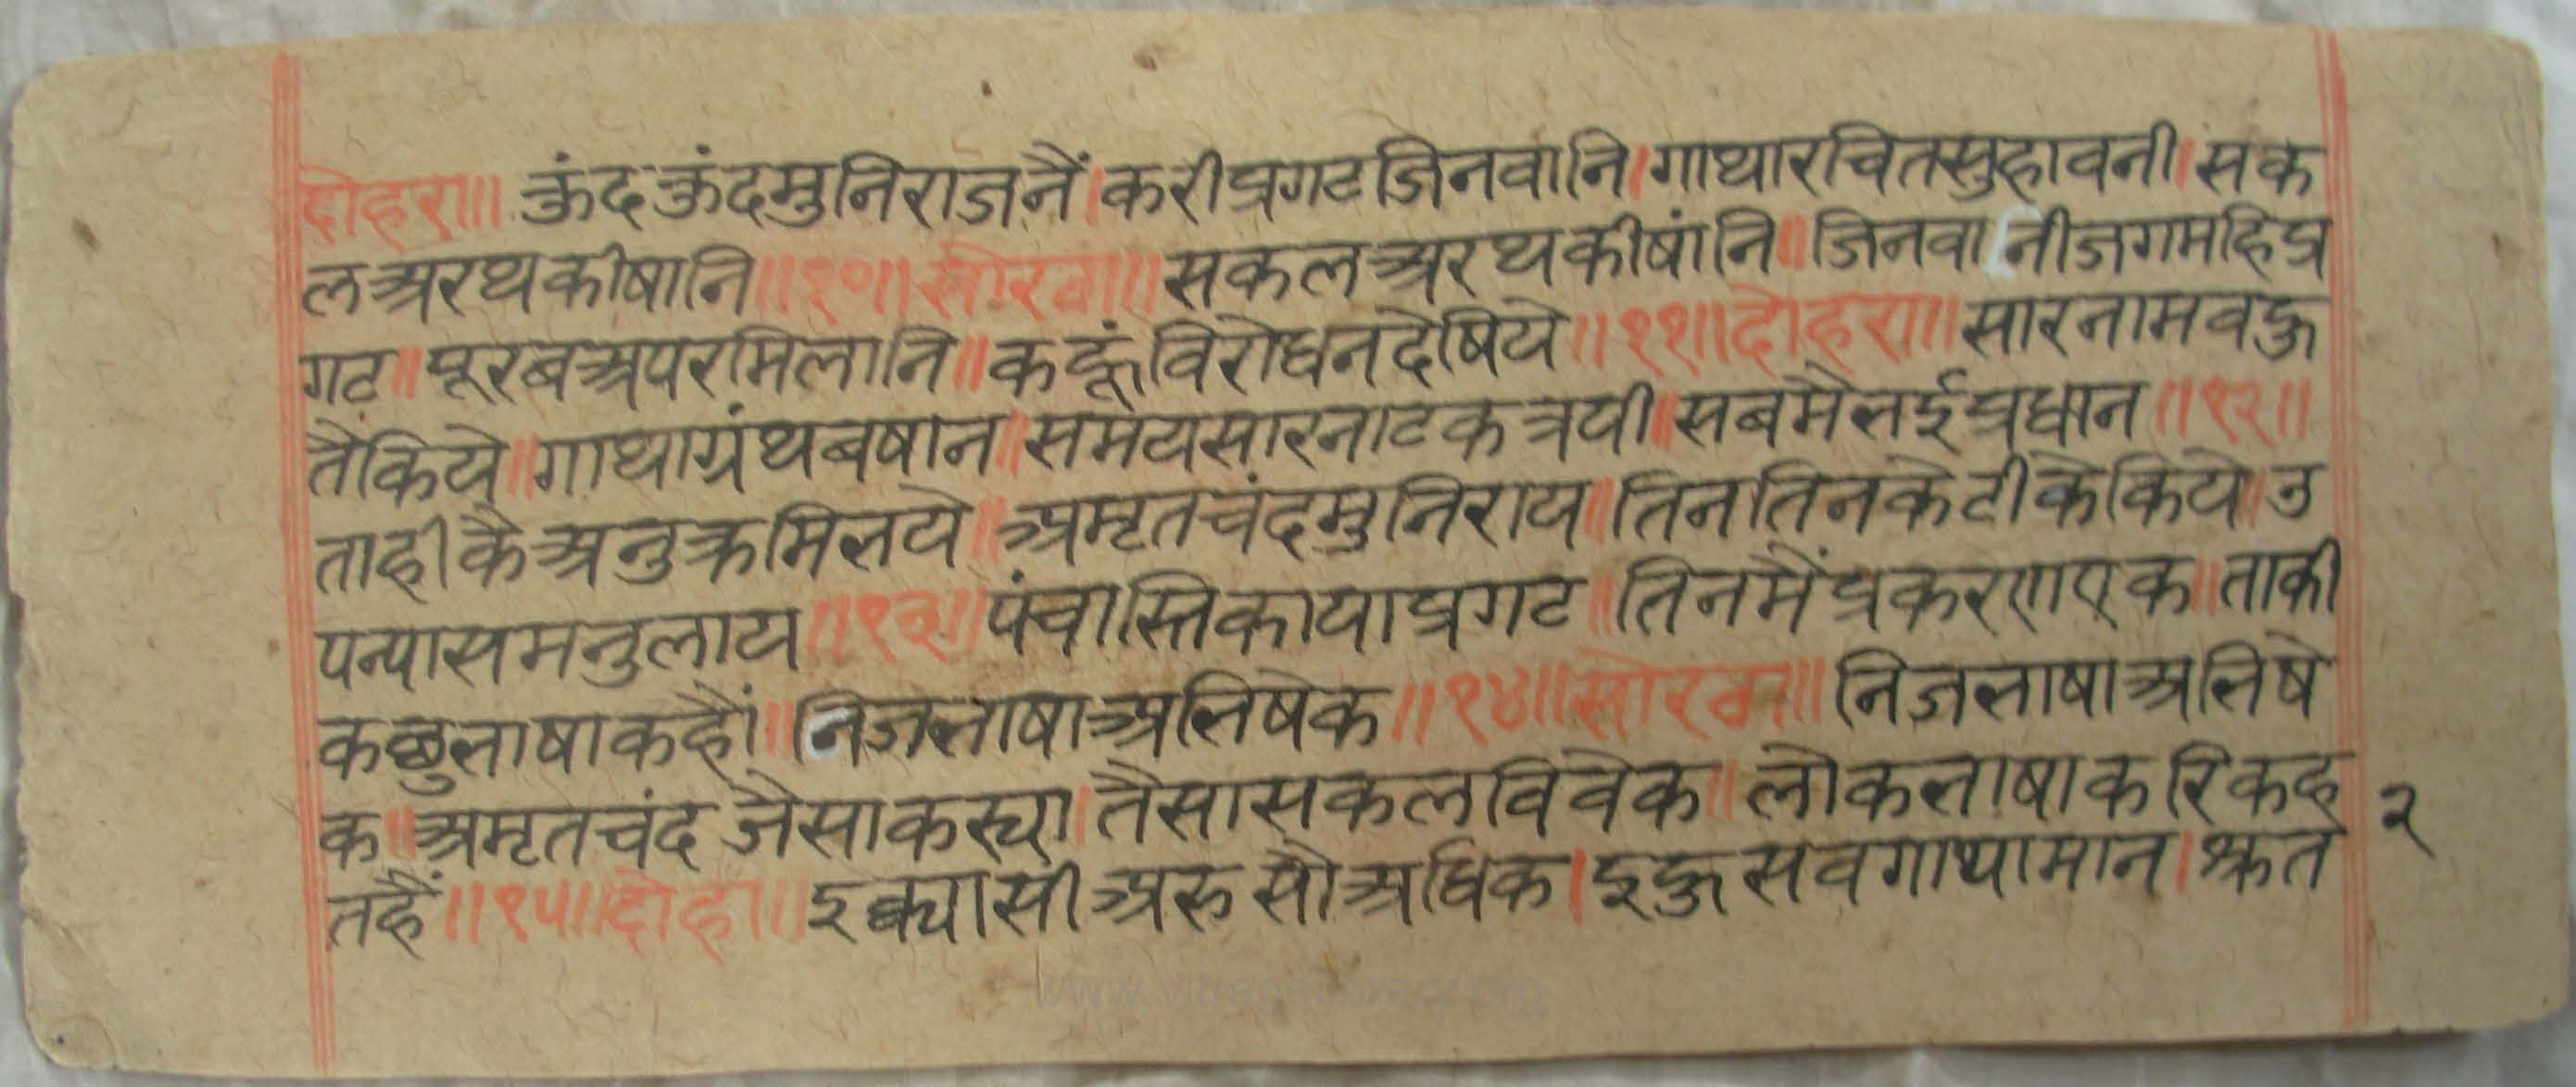 दोहरा॥ कुंदकुंदमुनिराजनैं।करीप्रगटजिनवानि।गाथारचितसुहावनी।सक
लअरथकीषानि॥१०॥सोरठा॥सकलअरथकीषांनि॥जिनवानीजगमहिप्र
गट॥पूरबअपरमिलानि॥कहूंविरोधनदेषिये॥११॥दोहरा॥सारनामवहु
तैंकिये॥गाथाग्रंथबषान॥समयसारनाटकत्रयी॥सबमैभईप्रधान॥१२॥
ताहीकैअनुक्रमिभये॥अमृतचंदमुनिराय॥तिनतिनकेटीकेकिये।उ
पन्यासमनुलाय॥१३॥पंचास्तिकायाप्रगट॥तिनमैंप्रकरणएक॥ताकी
कछुभाषाकहौं॥निजभाषाअभिषेक॥१४॥सोरठा॥निजभाषाअभिषे
क॥अमृतचंदजैसाकह्या।तैसासकलविवेक॥लोकभाषाकरिकह
तहैं॥१५॥दोहा॥इक्यासीअरुसौअधिक।इहुसवगाथामान।श्रुत
२
www.vitragalibrary.org